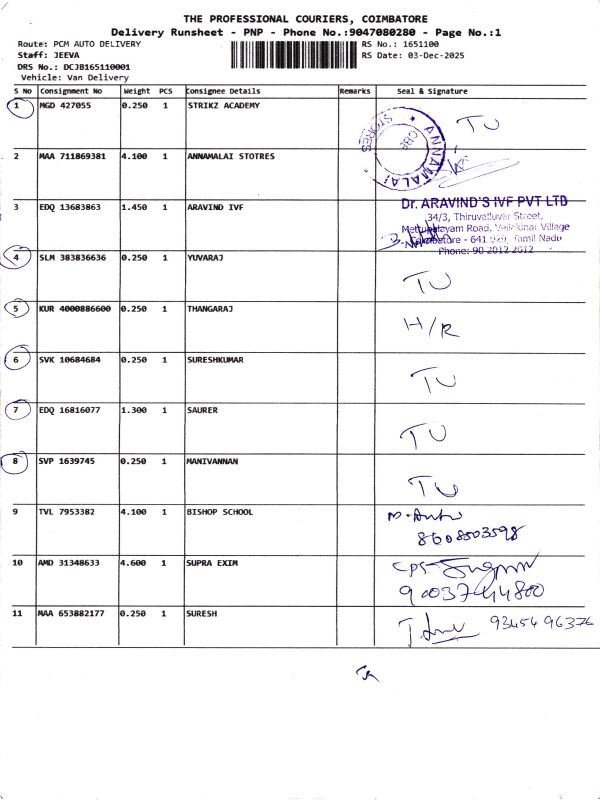 THE PROFESSIONAL COURIERS, COIMBATORE
Delivery Runsheet - PNP - Phone No.:9047080280 - Page No.:1
Route: PCM AUTO DELIVERY
RS No.: 1651100
Staff: JEEVA
RS Date: 03-Dec-2025
DRS No.: DCJB165110001
Vehicle: Van Delivery
S No Consignment No Weight PCS Consignee Details Remarks Seal & Signature
1 MGD 427055 0.250 1 STRIKZ ACADEMY TU
ANNAMALAI STORES CBE
2 MAA 711869381 4.100 1 ANNAMALAI STOTRES
3 EDQ 13683863 1.450 1 ARAVIND IVF
Dr. ARAVIND'S IVF PVT LTD
34/3, Thiruvalluvar Street,
Mettupalayam Road, Village
Coimbatore - 641 Tamil Nadu
Phone: 90 2012 2012
4 SLM 383836636 0.250 1 YUVARAJ TU
5 KUR 4000886600 0.250 1 THANGARAJ H/R
6 SVK 10684684 0.250 1 SURESHKUMAR TU
7 EDQ 16816077 1.300 1 SAURER TU
8 SVP 1639745 0.250 1 MANIVANNAN TU
9 TVL 7953382 4.100 1 BISHOP SCHOOL
8608803598
10 AMD 31348633 4.600 1 SUPRA EXIM
9003744800
11 MAA 653882177 0.250 1 SURESH 9345496376